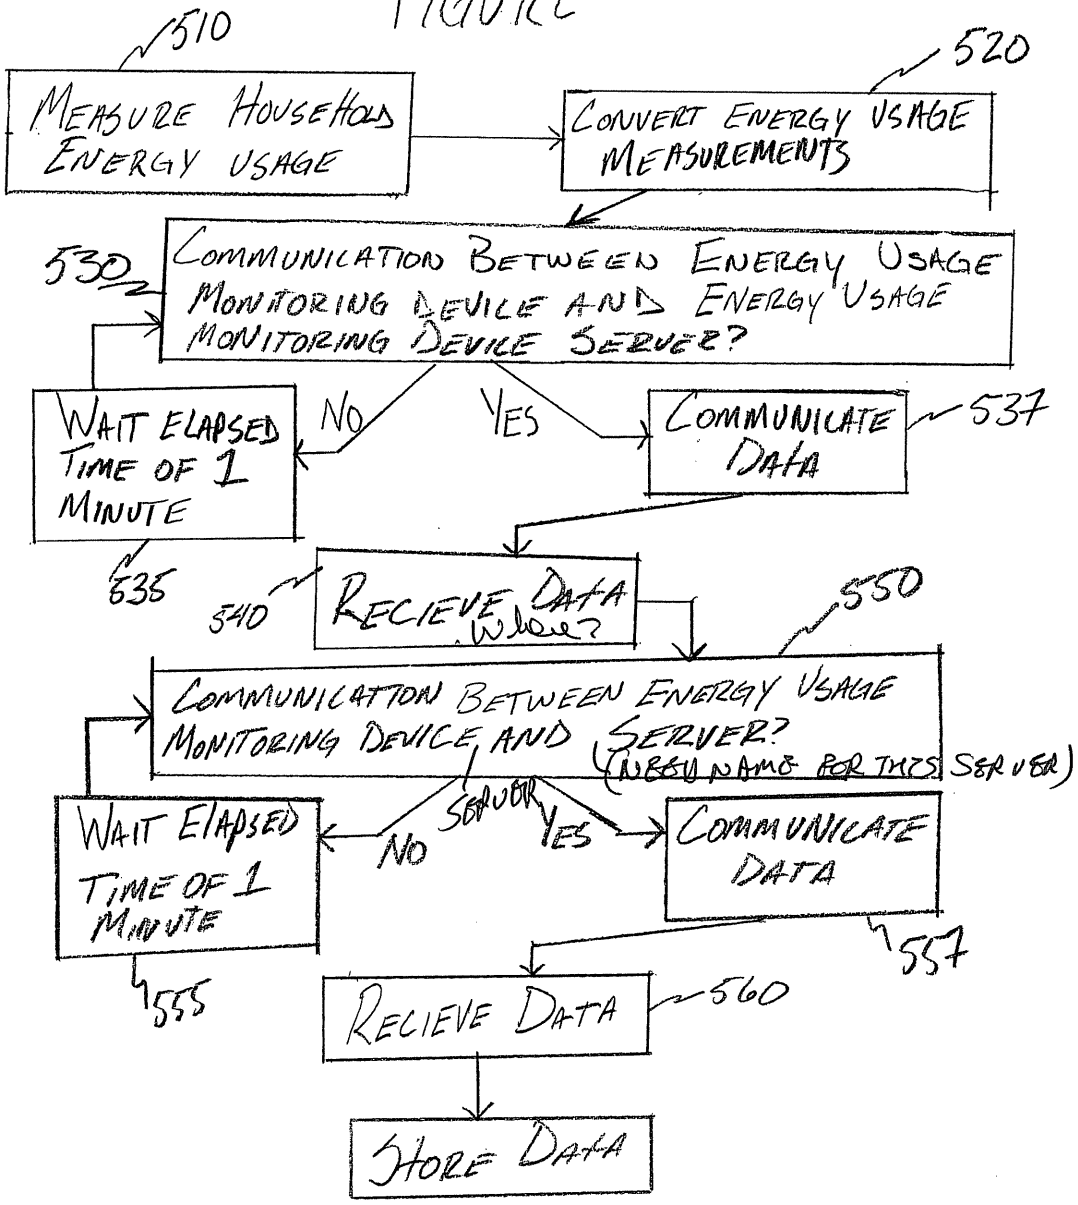 FIGURE
510
520
MEASURE HOUSEHOLD
ENERGY USAGE
CONVERT ENERGY USAGE
MEASUREMENTS
530
COMMUNICATION BETWEEN ENERGY USAGE
MONITORING DEVICE AND ENERGY USAGE
MONITORING DEVICE SERVER?
NO
YES
WAIT ELAPSED
TIME OF 1
MINUTE
535
COMMUNICATE
DATA
537
540
RECIEVE DATA
Where?
550
COMMUNICATION BETWEEN ENERGY USAGE
MONITORING DEVICE AND SERVER?
(NEED NAME FOR THIS SERVER)
SERVER
NO
YES
WAIT ELAPSED
TIME OF 1
MINUTE
555
COMMUNICATE
DATA
557
RECIEVE DATA
560
STORE DATA